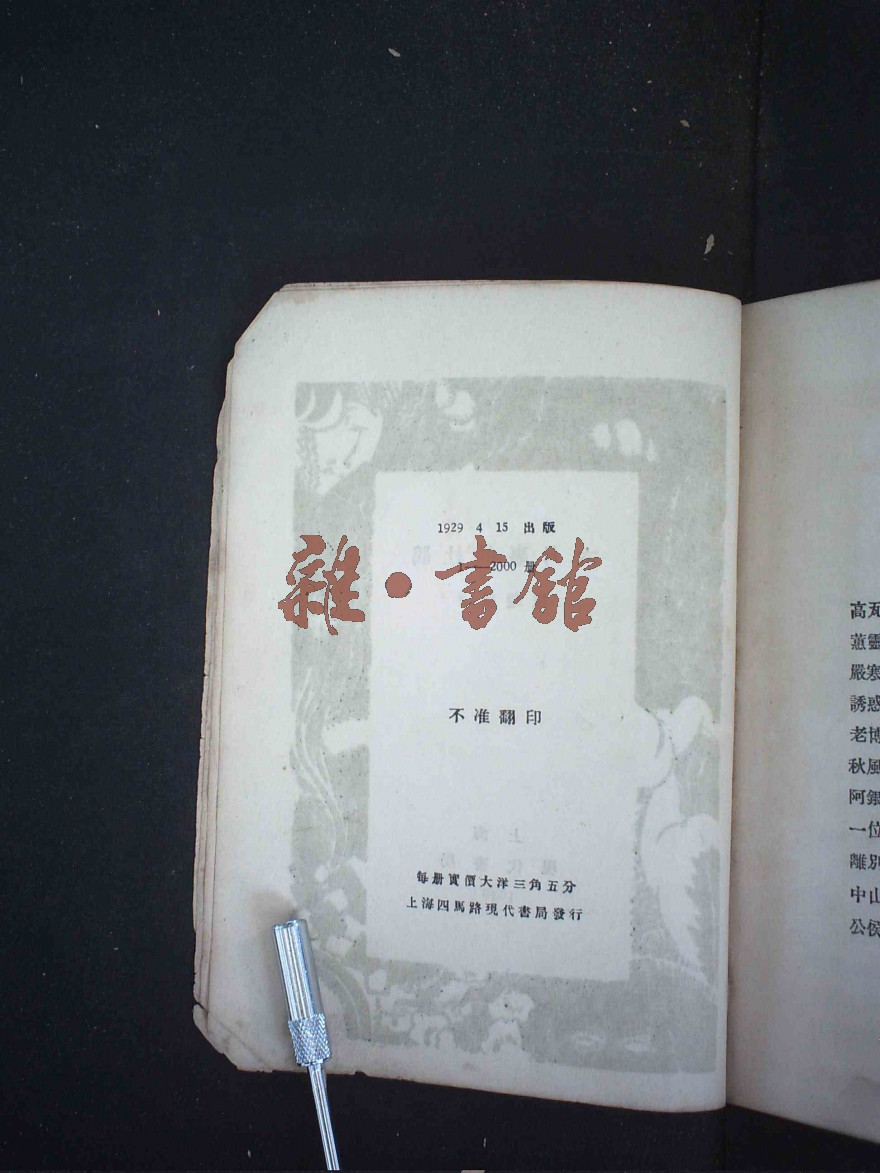 1929 4 15 出版
1—2000 册
雜·書館
不准翻印
每册實價大洋三角五分
上海四馬路現代書局發行
高瓦
蕙靈
嚴寒
誘惑
老博
秋風
阿銀
一位
離別
中山
公侯